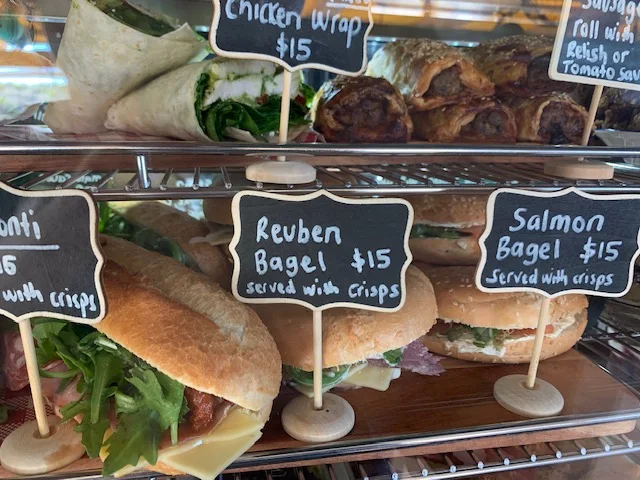 Chicken Wrap
$15
Sausage
roll with
Relish or
Tomato Sauce
onti
with crisps
Reuben
Bagel $15
Served with crisps
Salmon
Bagel $15
Served with crisps